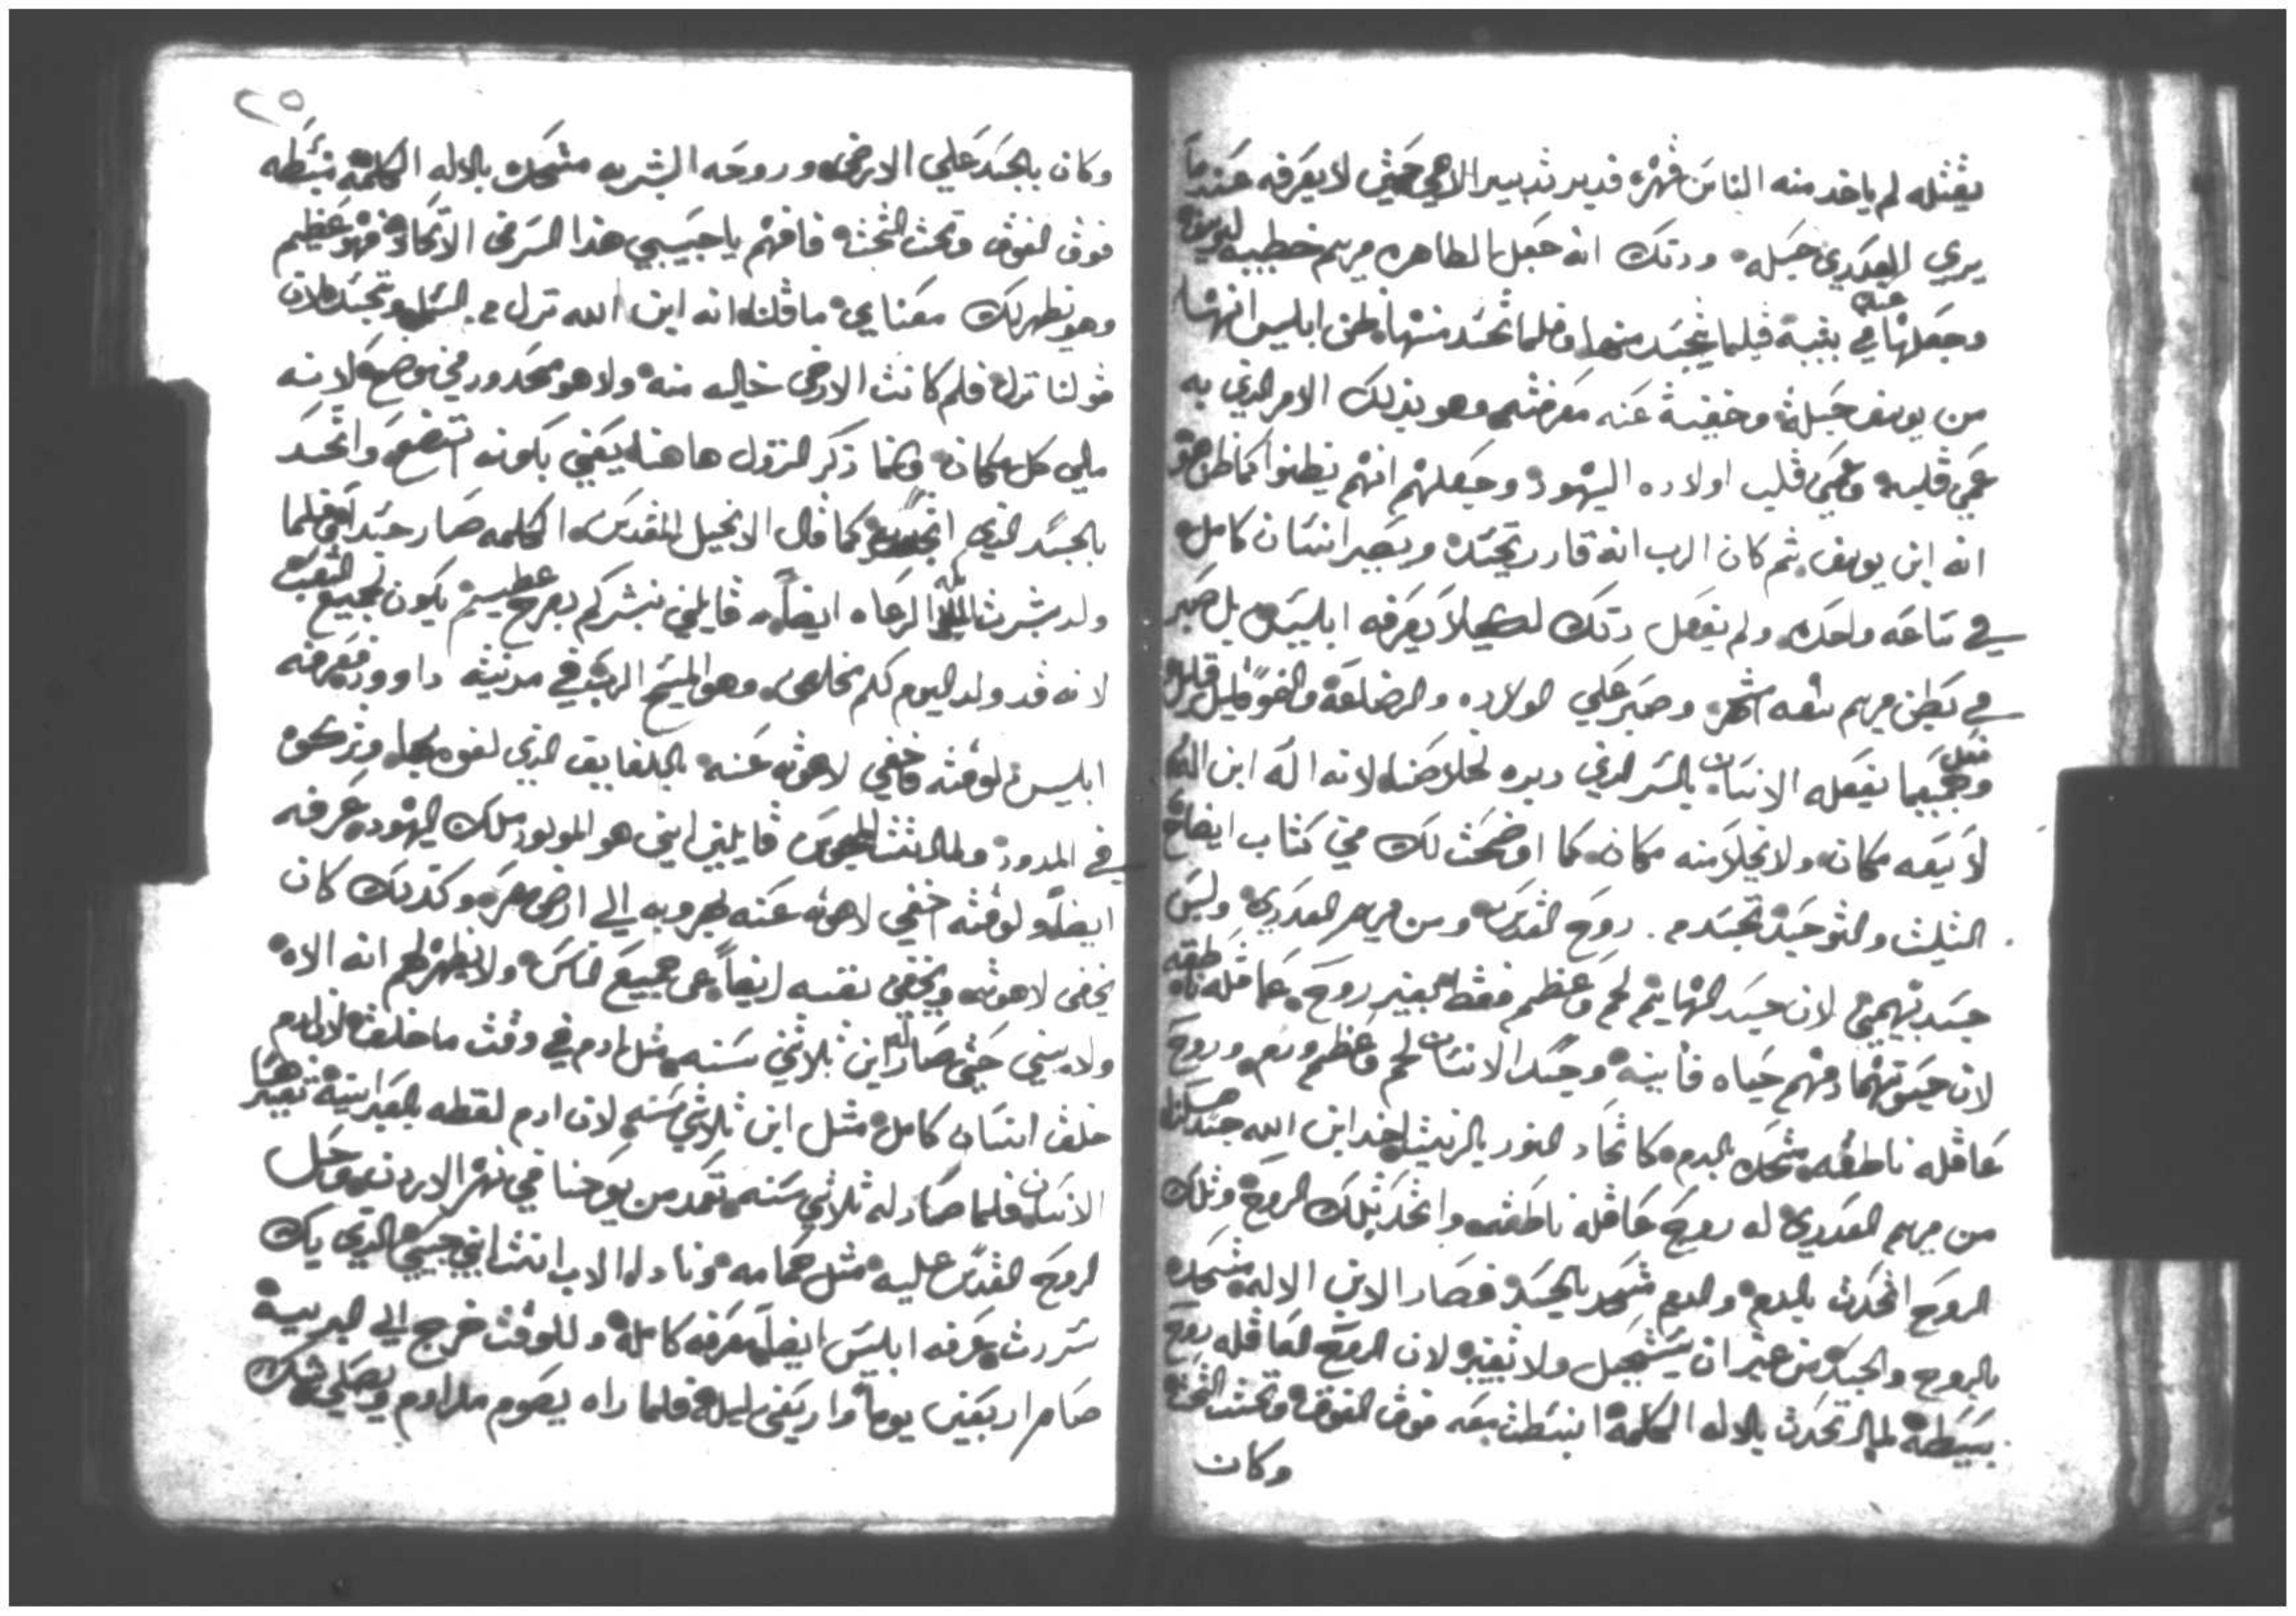 يقتله لم ياخد منه الناس قهره فدبر تدبير الاهي حتي لا يعرفه عندما
يري العدري حبله ودلك انه جعل الطاهره مريم خطيبه ليوسف
وجعلها في بيته عنده فلما تجسد منها فلما تجسد منها ظن ابليس انها
من يوسف حبله وخفية عنه معرفته وهو بدلك الامر الذي به
عمي قلبه وعمي قلب اولاده اليهود وجعلهم انهم يظنوا كما ظن هو
انه ابن يوسف ثم كان الرب انه قادر يتجسد ويصير انسان كامل
في ساعه واحده ولم يفعل دلك لكيلا يعرفه ابليس بل صبر
في بطن مريم تسعه اشهر وصبر علي الولاده والرضاعة والنمو قليل قليل
وجميع ما يفعله الانسان فعل بالسر الذي دبره لخلاصنا لانه اله ابن اله
لا يسعه مكان ولا يخلا منه مكان كما اوضحت لك في كتاب ايضاح
التثليث والتوحيد تجسد من روح القدس ومن مريم العدري وليس
جسد بهيمي لان جسد البهايم لحم وعظم فقط بغير روح عاقله ناطقه
لان حيوتهما دمهم حياه فانية وجسد الانسان لحم وعظم ودم وروح
عاقله ناطقه متحده بالدم كاتحاد النور بالزيت اخد ابن الله جسد
من مريم العدري له روح عاقله ناطقه واتحد بتلك الروح وتلك
الروح اتحدت بالدم والدم متحد بالجسد فصار الابن الاله متحده
بالروح والجسد من غير ان يستحيل ولا تغيير لان الروح العاقله روح
بسيطة لما اتحدت بالاله الكلمة انبسطت معه فوق الفوق وتحت التحت
وكان
٢٥
وكان بالجسد علي الارض وروحه البشريه متحده بالاله الكلمة منبسطه
فوق الفوق وتحت التحت فافهم يا حبيبي هدا السر في الاتحاد فهو عظيم
وهو يظهر لك معناي ما قلنا انه ابن الله نزل من السما وتجسد لان
قولنا نزل فلم كانت الارض خاليه منه ولا هو محدود في موضع لانه
مالي كل مكان وانما ذكر النزول هاهنا يعني بكونه اتضع واتحد
بالجسد الذي اتحد به كما قال الانجيل المقدس الكلمه صار جسدا فلما
ولد بشرت الملايكه الرعاه ايضا قايلين نبشركم بفرح عظيم يكون لجميع الشعب
لانه قد ولد اليوم لكم مخلص وهو المسيح الرب في مدينة داوود فعرفه
ابليس لوقته فاخفي لاهوته عنه باللفايف الذي لفوه بها وتركوه
في المدود ولما اتت المجوس قايلين اين هو المولود ملك اليهود عرفه
ايضا ولوقته اخفي لاهوته عنه بهروبه الي ارض مصر وكدلك كان
يخفي لاهوته ويخفي نفسه ايضا عن جميع الناس ولا يظهر لهم انه الاه
ولا يبني حتي صار له ابن ثلاثين سنه مثل ادم في وقت ما خلق لان ادم
خلق انسان كامل مثل ابن ثلاثين سنه لان ادم لفظه بالعبرانية تفسيرها
الانسان فلما صار له ثلاثين سنه تعمد من يوحنا في نهر الاردن وحل
الروح القدس عليه مثل حمامه وناداه الاب انت ابني حبيبي الذي بك
سررت عرفه ابليس ايضا معرفه كاملة وللوقت خرج الي البرية
صام اربعين يوما واربعين ليلة فلما راه يصوم مثل ادم ويصلي شك